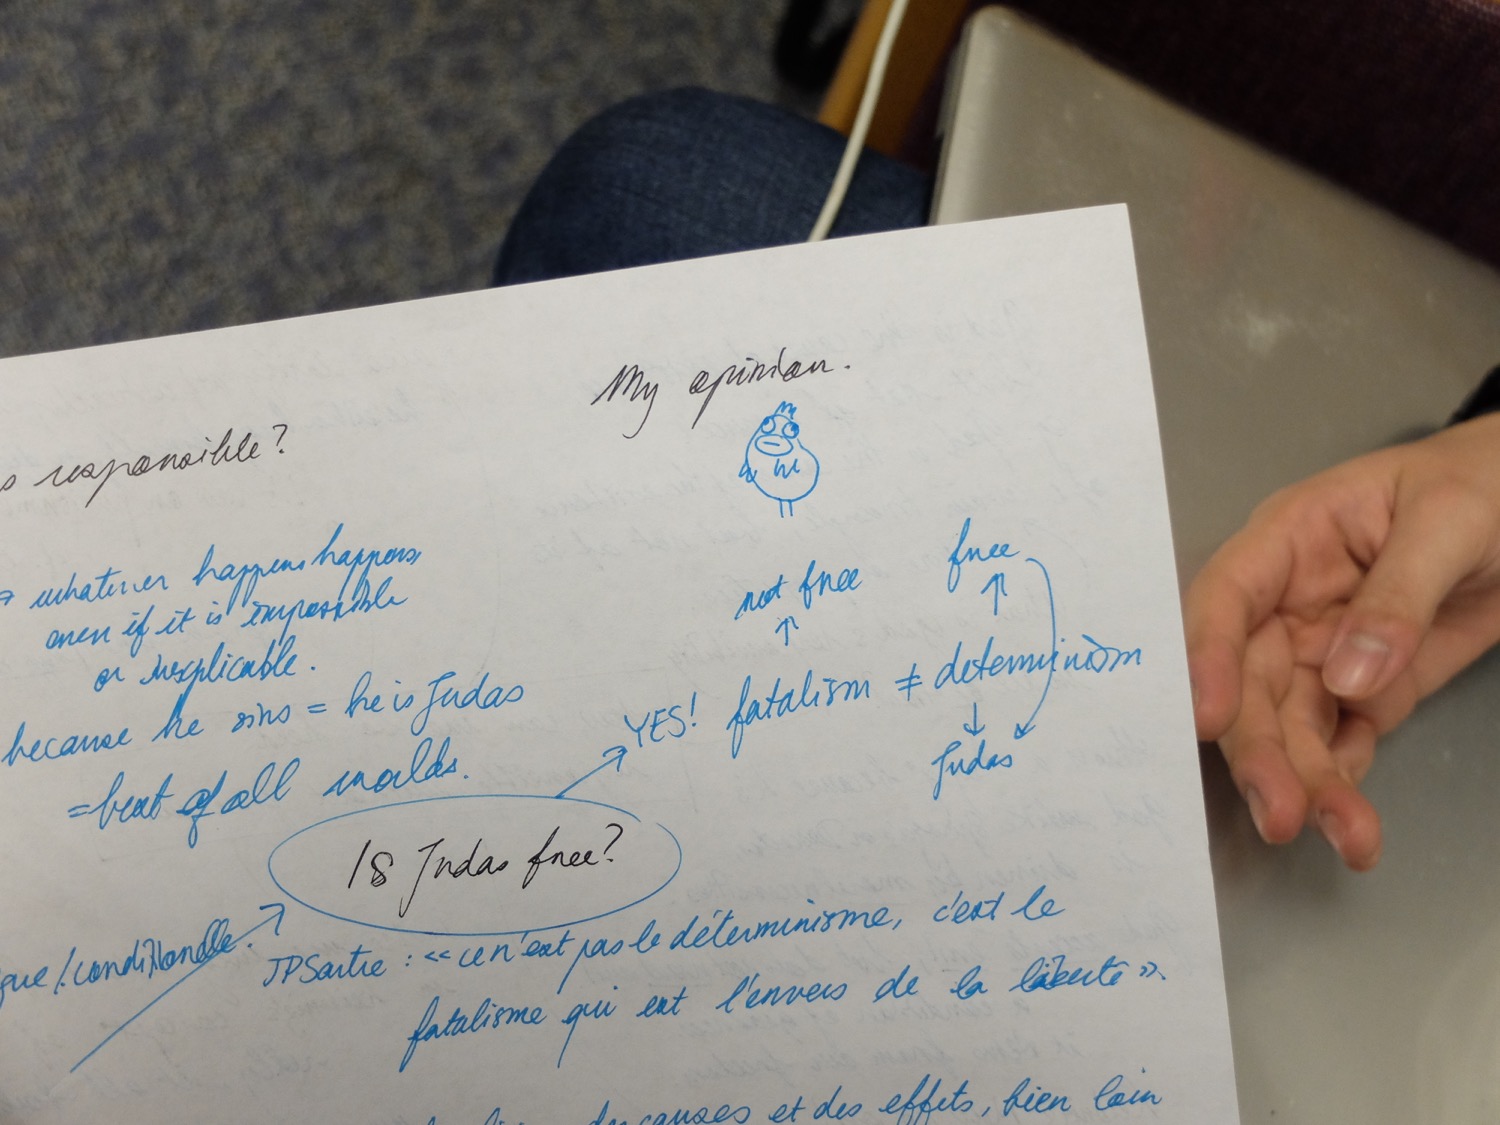 My opinion.
s responsible?
→ whatever happens happens,
even if it is impossible
or inexplicable.
because he sins = he is Judas
= best of all worlds.
not free
↑
free
↑
YES! fatalism ≠ determinism
↓
Judas
Is Judas free?
que/conditionelle.
JPSartre : « ce n'est pas le déterminisme, c'est le
fatalisme qui est l'envers de la liberté ».
causes et des effets, bien loin